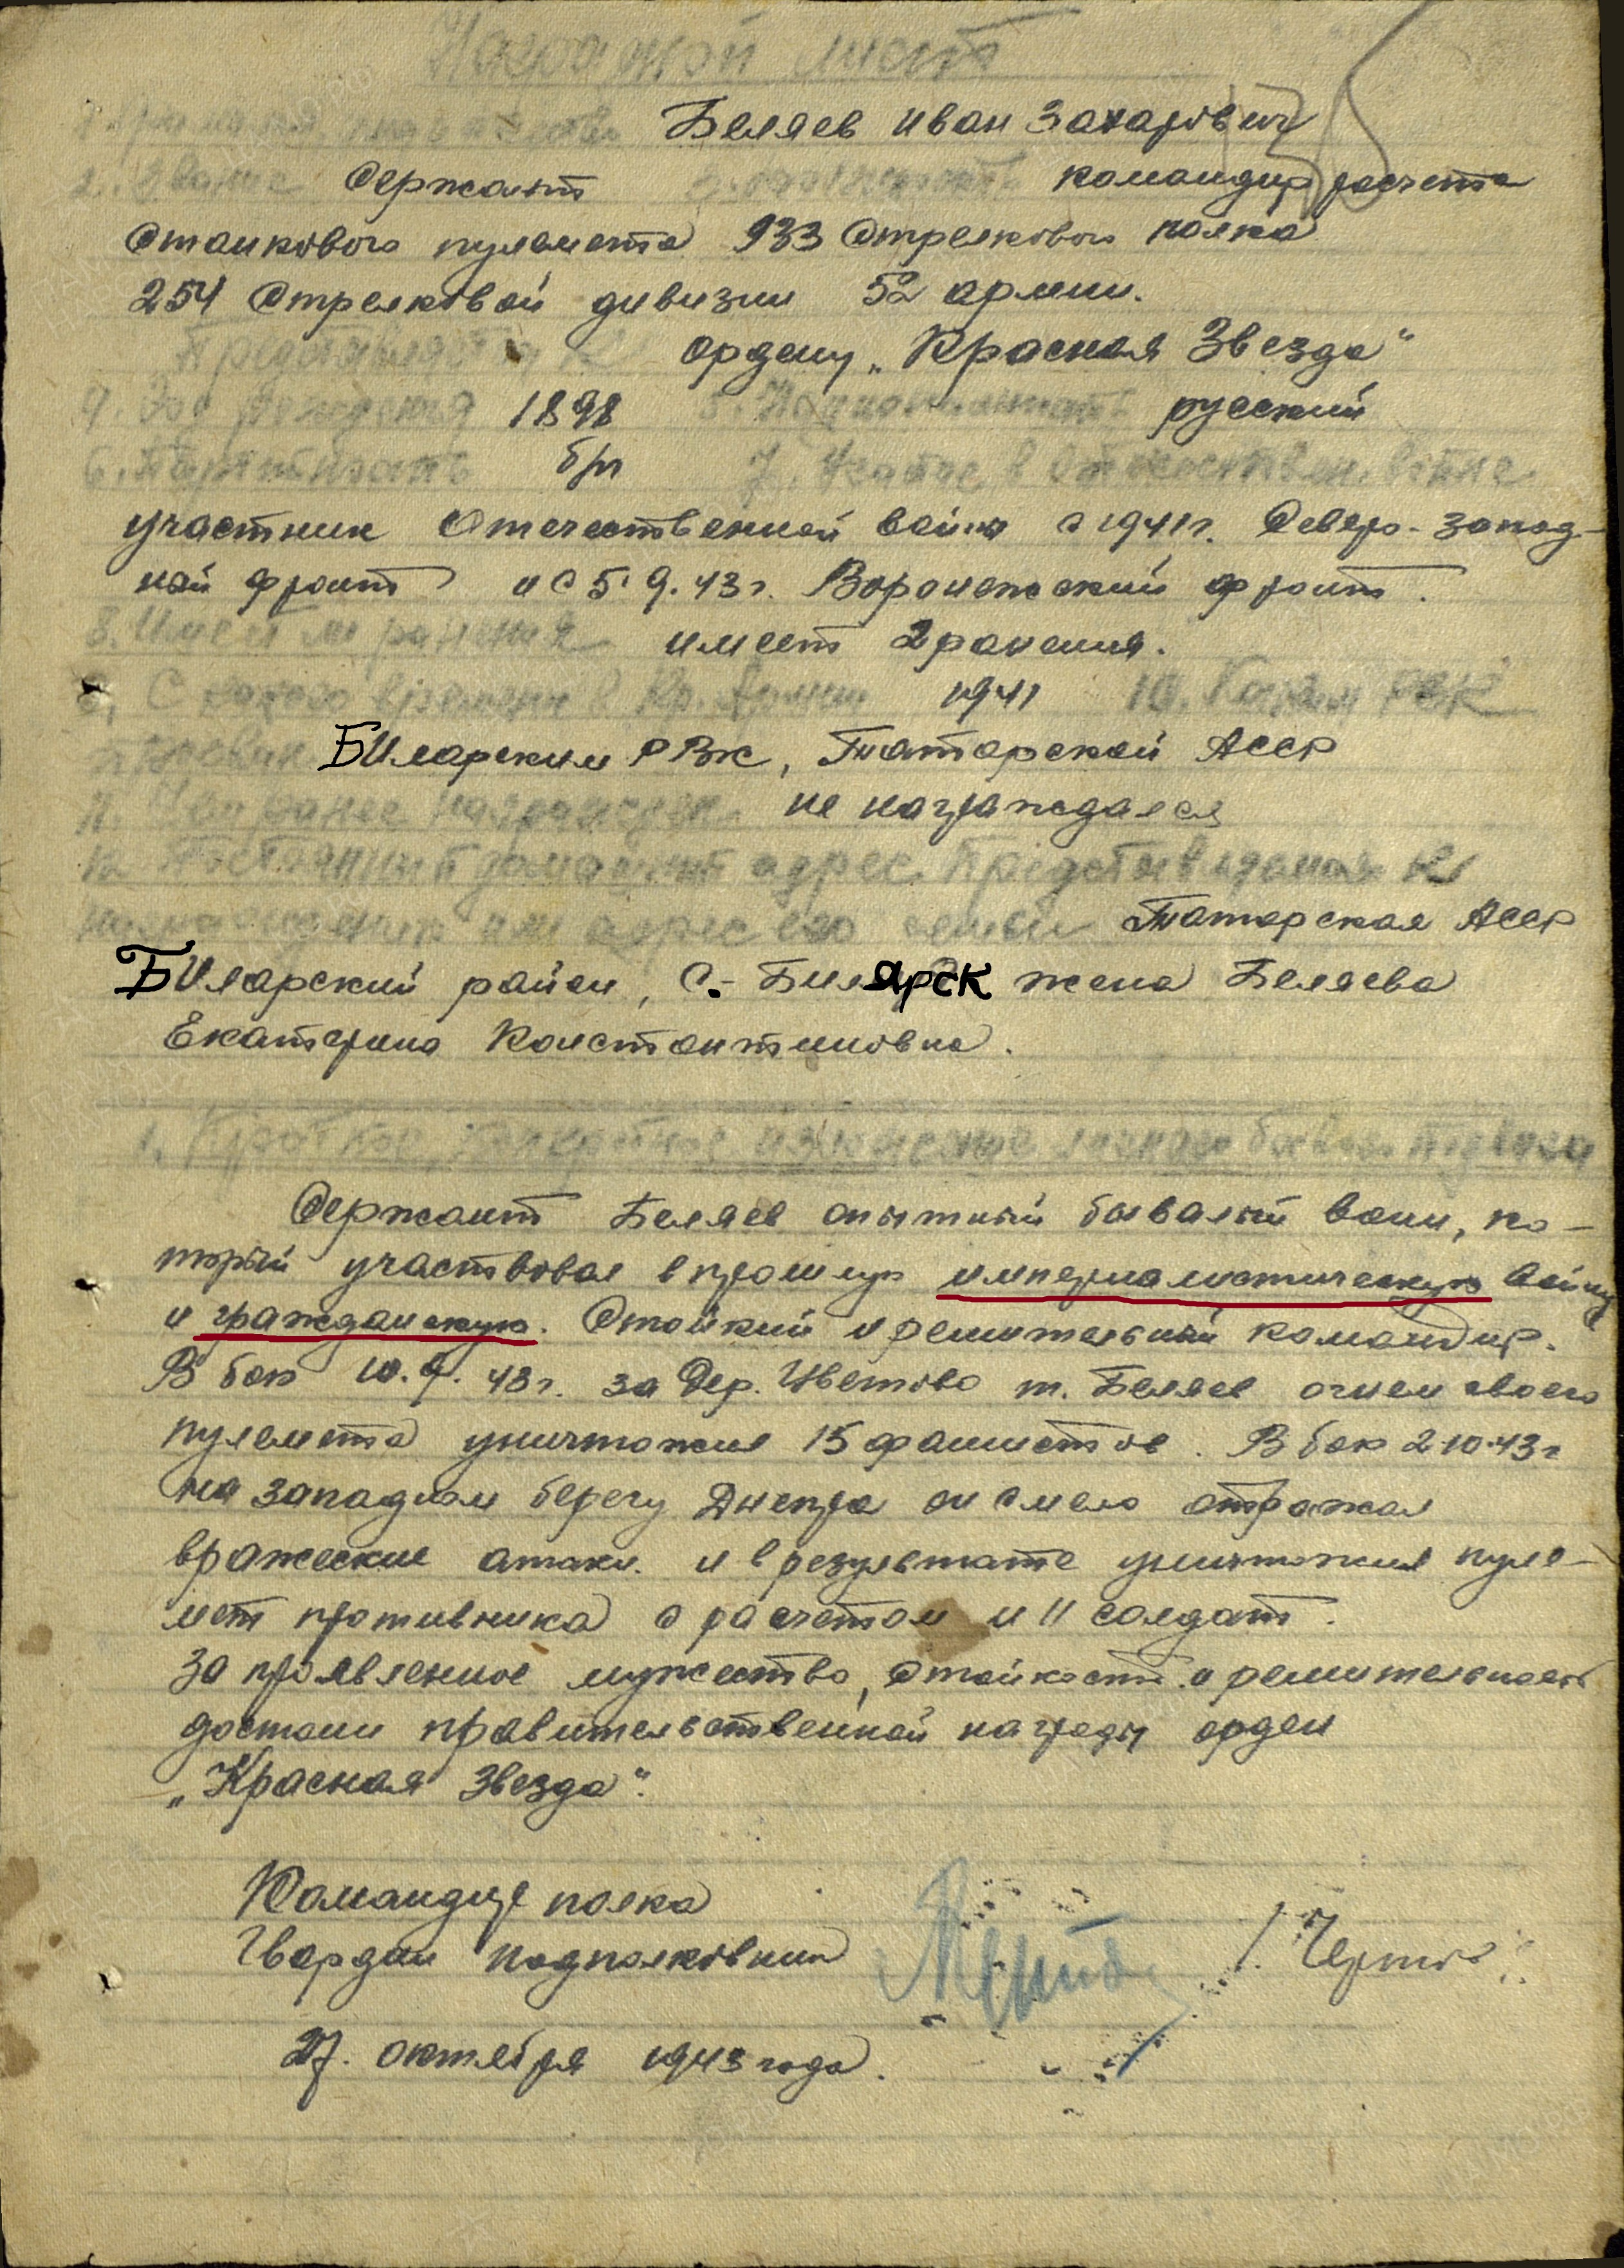 Наградной лист
1. Фамилия, имя, отчество Беляев Иван Захарович
2. Звание Сержант 3. должность командир расчета
станкового пулемета 933 стрелкового полка
254 стрелковой дивизии 52 армии.
Представляется к ордену „Красная Звезда“
4. Год рождения 1898 5. Национальность русский
6. Партийность б/п 7. Участие в отечествен. войне
участник Отечественной войны с 1941 г. Северо-запад-
ный фронт и с 5.9.43 г. Воронежский фронт.
8. Имеет ли ранения имеет 2 ранения.
9. С какого времени в Кр. Армии 1941 10. Каким РВК
призван Билярским РВК, Татарской АССР
11. Чем ранее награжден не награждался
12. Постоянный домашний адрес представляемого к
награждению или адрес его семьи Татарская АССР
Билярский район, с.- Билярск жена Беляева
Екатерина Константиновна.
1. Краткое, конкретное изложение личного боевого подвига
Сержант Беляев опытный бывалый воин, ко-
торый участвовал в прошлую империалистическую войну
и гражданскую. Стойкий и решительный командир.
В бою 10.9.43 г. за дер. Цветово т. Беляев огнем своего
пулемета уничтожил 15 фашистов. В бою 2.10.43 г
на западном берегу Днепра он смело отражал
вражеские атаки. и в результате уничтожил пуле-
мет противника с расчетом и 11 солдат.
За проявленное мужество, стойкость и решительность
достоин правительственной награды орден
„Красная Звезда“.
Командир полка
Гвардии подполковник
27. октября 1943 года.